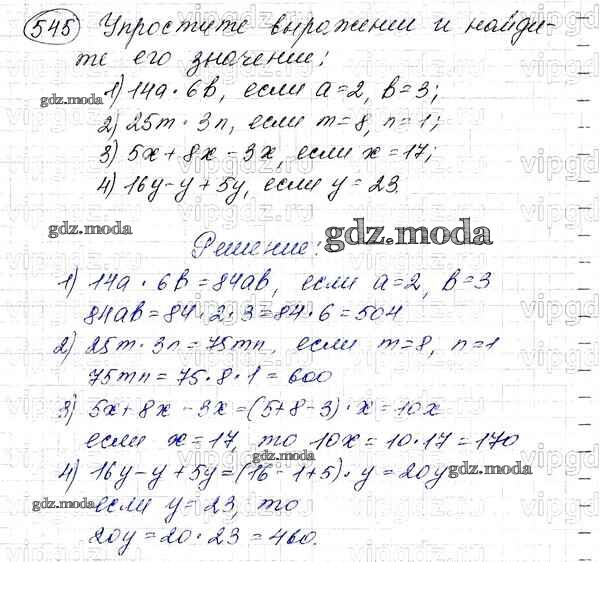 545 Упростите выражении и найди-
те его значении:
1) 14a · 6b, если a=2, b=3;
gdz.moda
2) 25m · 3n, если m=8, n=1;
3) 5x+8x-3x, если x=17;
gdz.moda
4) 16y-y+5y, если y=23.
gdz.moda
Решение:
gdz.moda
1) 14a · 6b=84ab, если a=2, b=3
84ab=84·2·3=84·6=504
2) 25m · 3n=75mn, если m=8, n=1
75mn=75·8·1=600
3) 5x+8x-3x=(5+8-3)·x=10x
если x=17, то 10x=10·17=170
gdz.moda
4) 16y-y+5y=(16-1+5)·y=20y
gdz.moda
если y=23, то
gdz.moda
20y=20·23=460.
gdz.moda